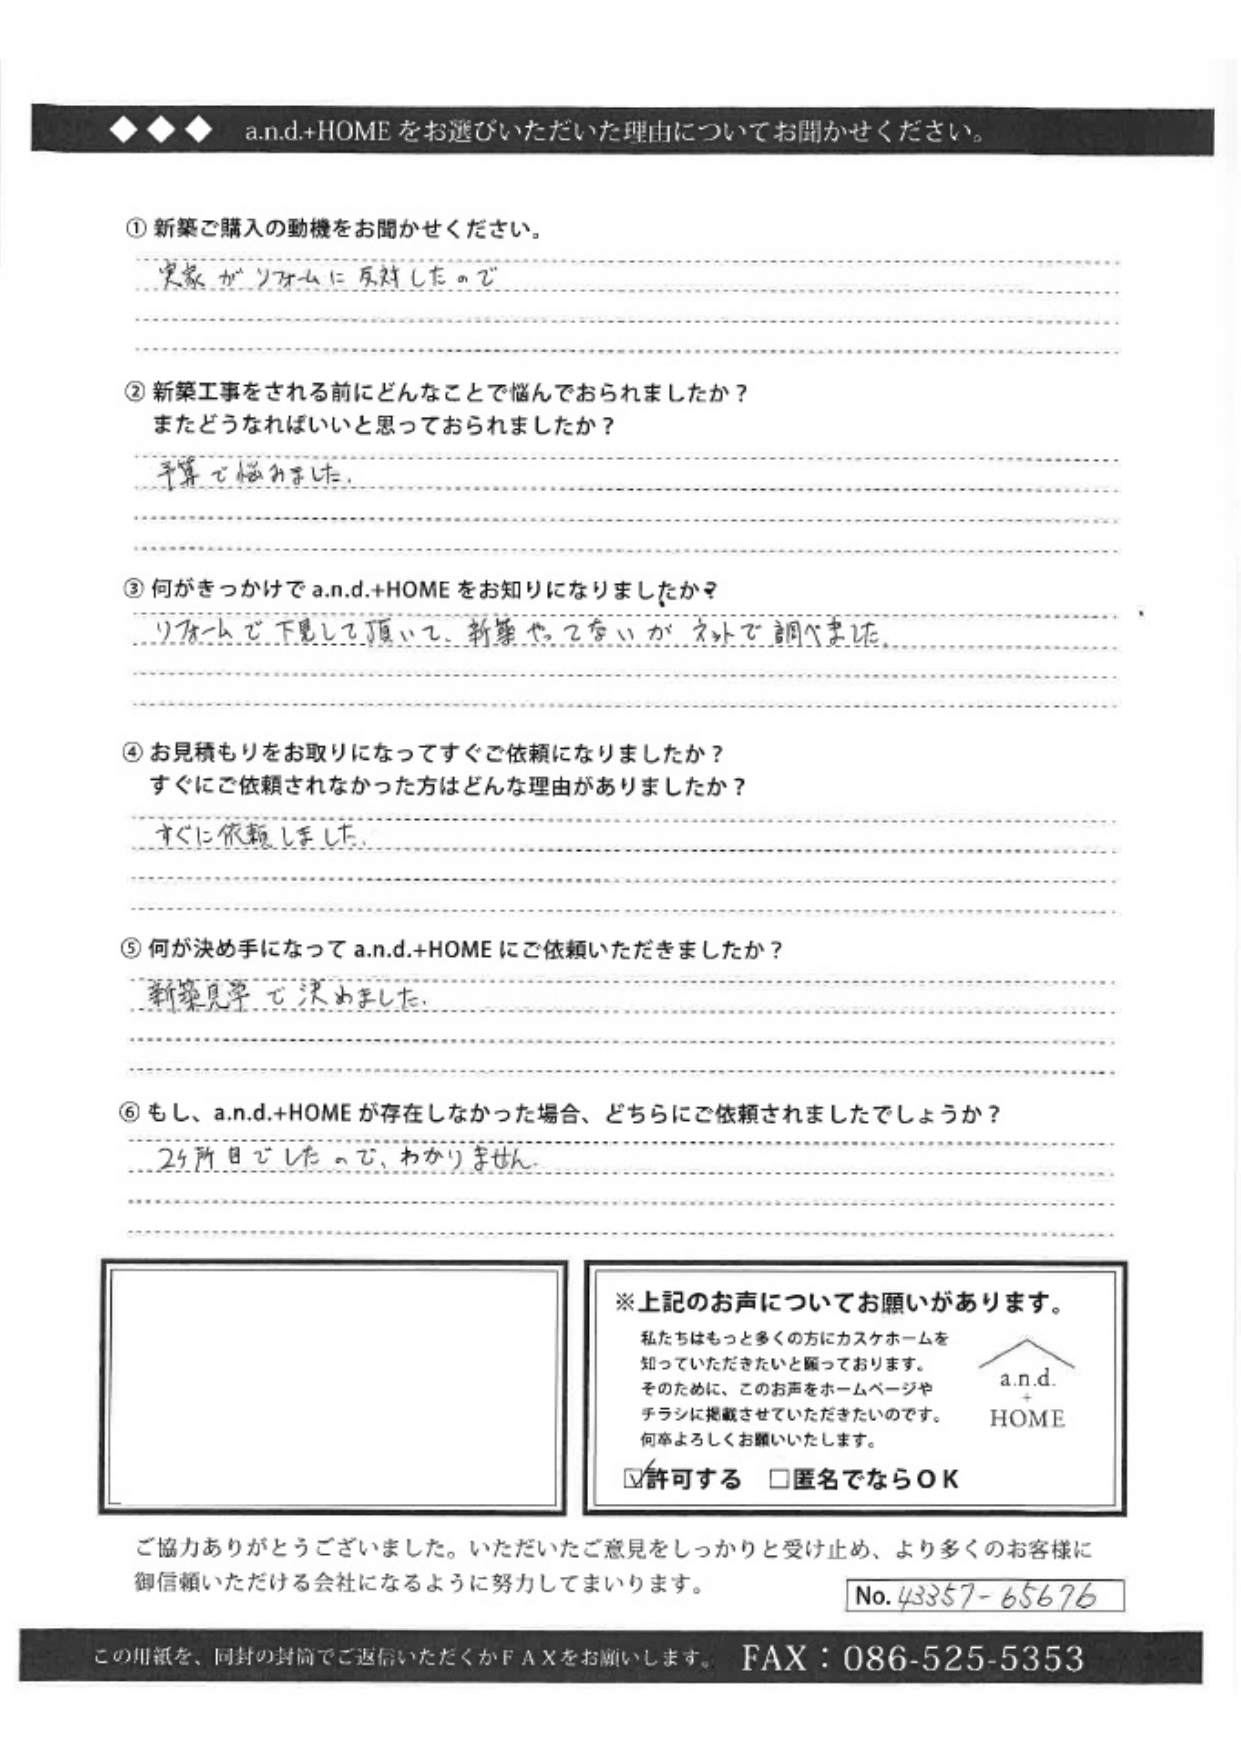 ◆◆◆ a.n.d.+HOME をお選びいただいた理由についてお聞かせください。
① 新築ご購入の動機をお聞かせください。
実家が リフォームに 反対したので
② 新築工事をされる前にどんなことで悩んでおられましたか？
またどうなればいいと思っておられましたか？
予算で悩みました.
③ 何がきっかけで a.n.d.+HOME をお知りになりましたか？
リフォームで下見して頂いて、新築やってないが ネットで調べました.
④ お見積もりをお取りになってすぐご依頼になりましたか？
すぐにご依頼されなかった方はどんな理由がありましたか？
すぐに依頼しました.
⑤ 何が決め手になって a.n.d.+HOME にご依頼いただきましたか？
新築見学で決めました.
⑥ もし、a.n.d.+HOME が存在しなかった場合、どちらにご依頼されましたでしょうか？
2ヶ所目でしたので、わかりません.
※上記のお声についてお願いがあります。
私たちはもっと多くの方にカスケホームを
知っていただきたいと願っております。
そのために、このお声をホームページや
チラシに掲載させていただきたいのです。
何卒よろしくお願いいたします。
a.n.d.
+
HOME
☑許可する □匿名でならＯＫ
ご協力ありがとうございました。いただいたご意見をしっかりと受け止め、より多くのお客様に
御信頼いただける会社になるように努力してまいります。
No. 43357-65676
この用紙を、同封の封筒でご返信いただくかＦＡＸをお願いします。 FAX：086-525-5353